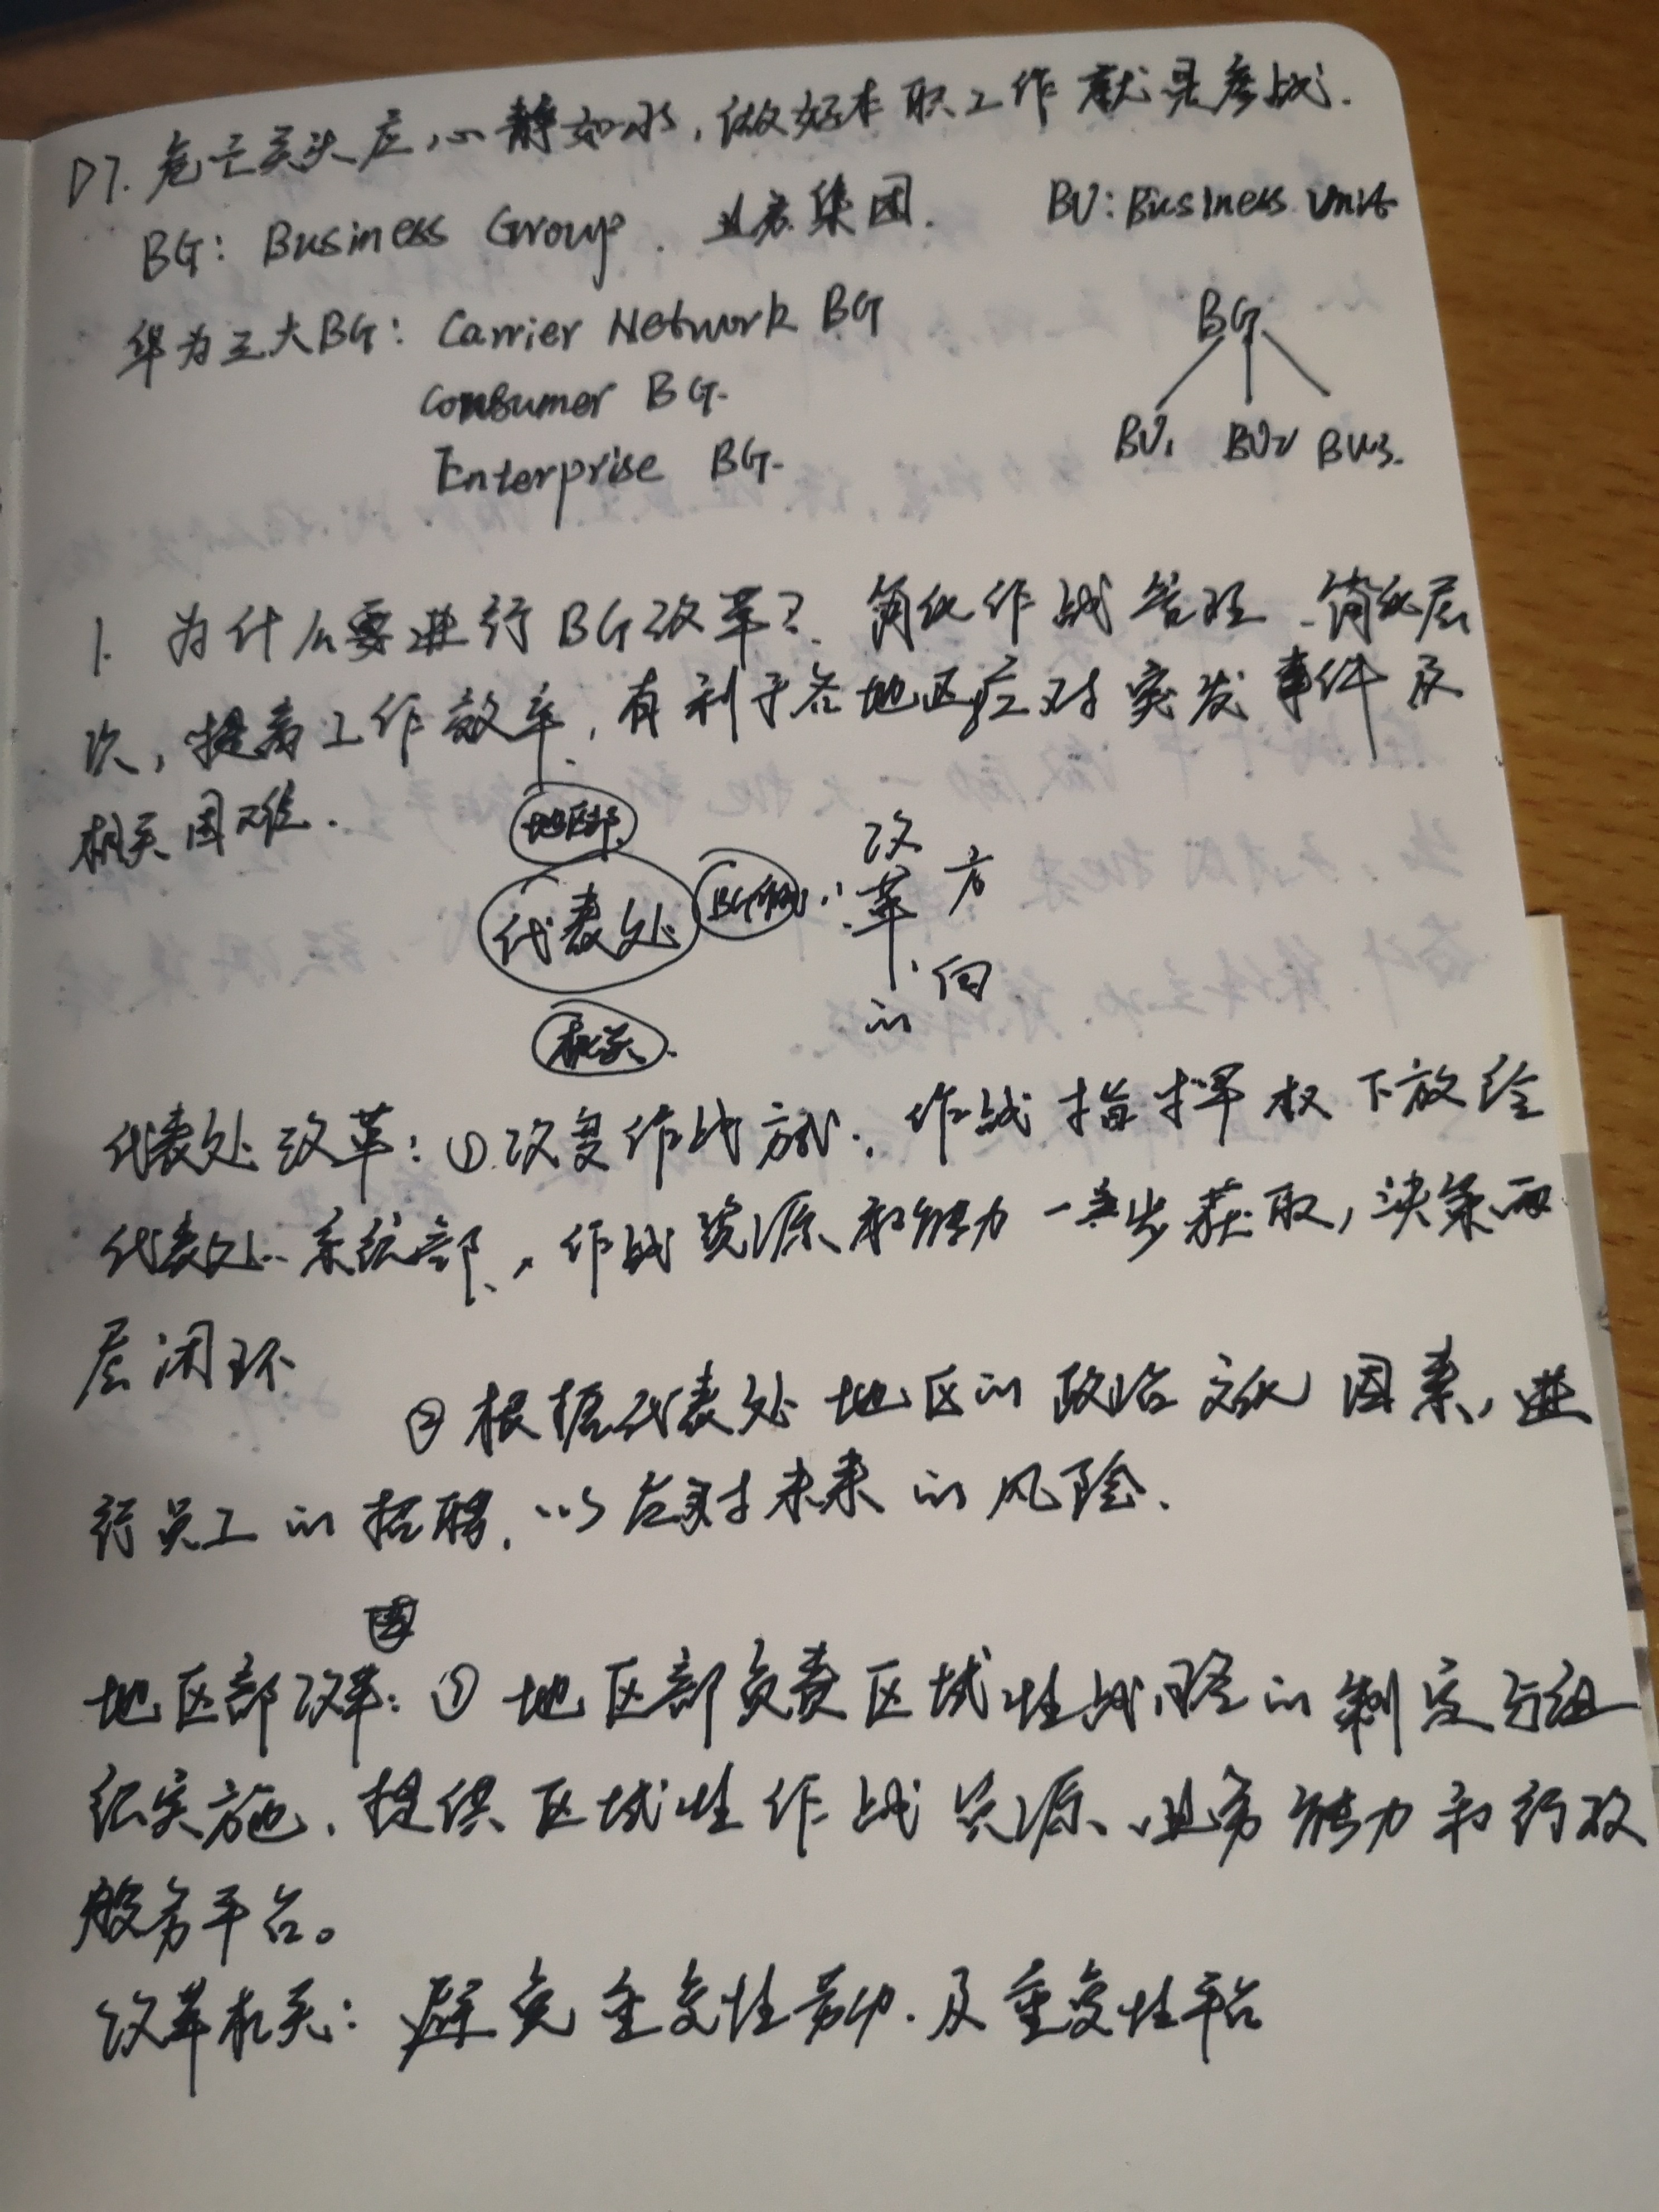 D7. 危亡关头应心静如水，做好本职工作就是参战.
BG: Business Group. 业务集团. BU: Business Unit
华为三大BG: Carrier Network BG
Consumer BG.
Enterprise BG.
BG
BU1 BU2 BU3.
1. 为什么要进行BG改革？. 简化作战管理、简化层
次，提高工作效率，有利于各地区应对突发事件及
相关困难.
地区部
代表处 BG
机关
改革的
方向
代表处改革: ①.改变作战方式. 作战指挥权下放给
代表处、系统部、，作战资源和能力一步获取，决策两
层闭环
②根据代表处地区的政治文化因素，进
行员工的招聘，以应对未来的风险.
地区部改革: ① 地区部负责区域性战略的制定与组
织实施、提供区域性作战资源、业务能力和行政
服务平台。
改革机关: 避免重复性劳动.及重复性平台